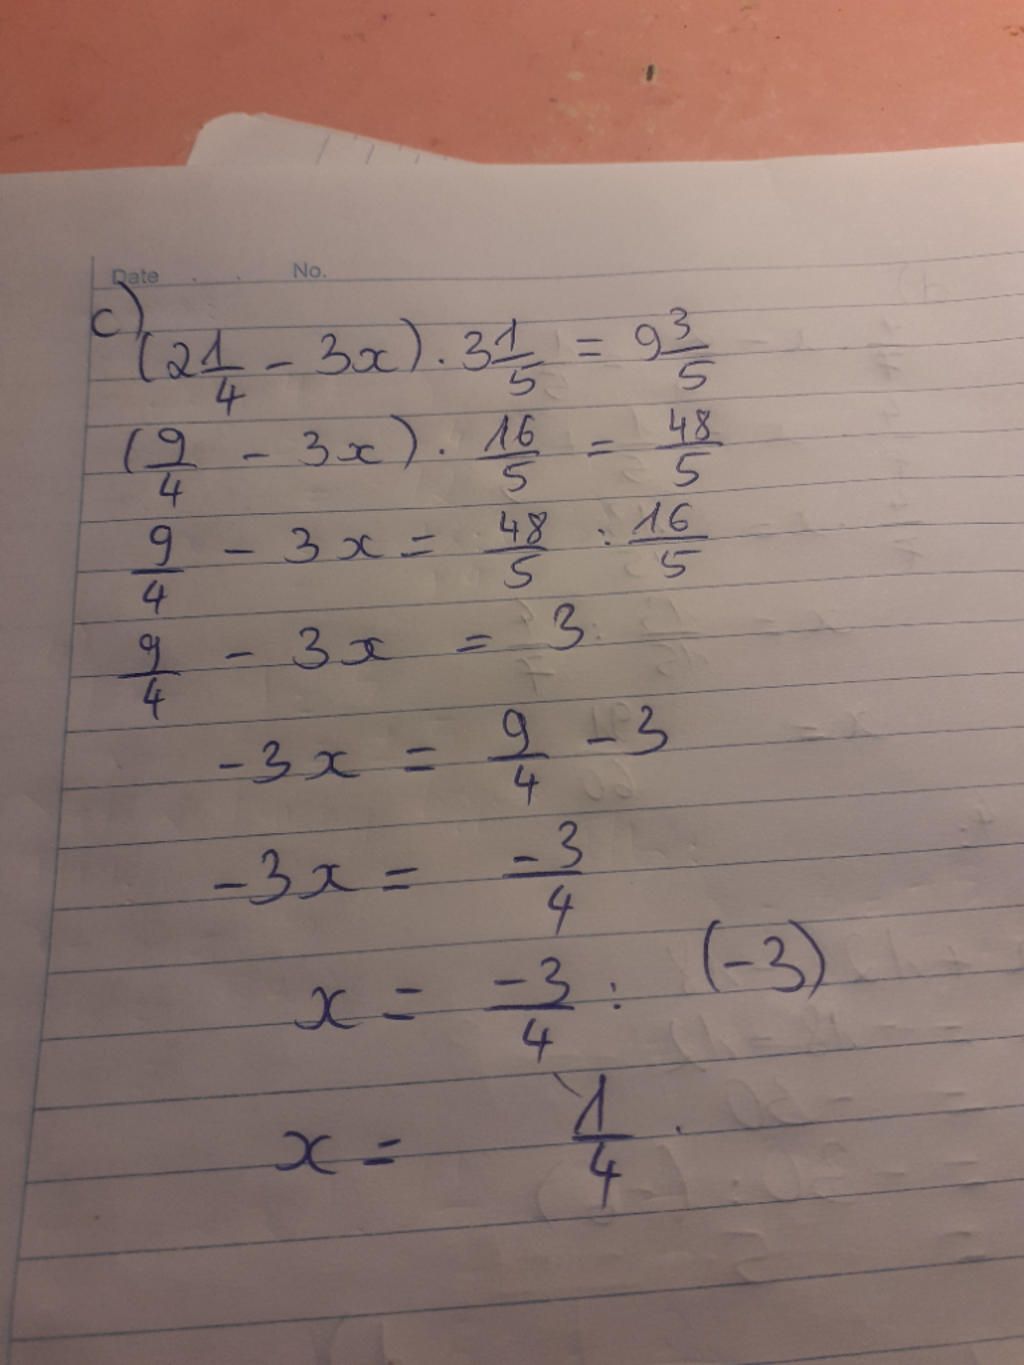 Date . . No.
c)
(2 1/4 - 3x) . 3 1/5 = 9 3/5
(9/4 - 3x) . 16/5 = 48/5
9/4 - 3x = 48/5 : 16/5
9/4 - 3x = 3
-3x = 9/4 - 3
-3x = -3/4
x = -3/4 : (-3)
x = 1/4 .